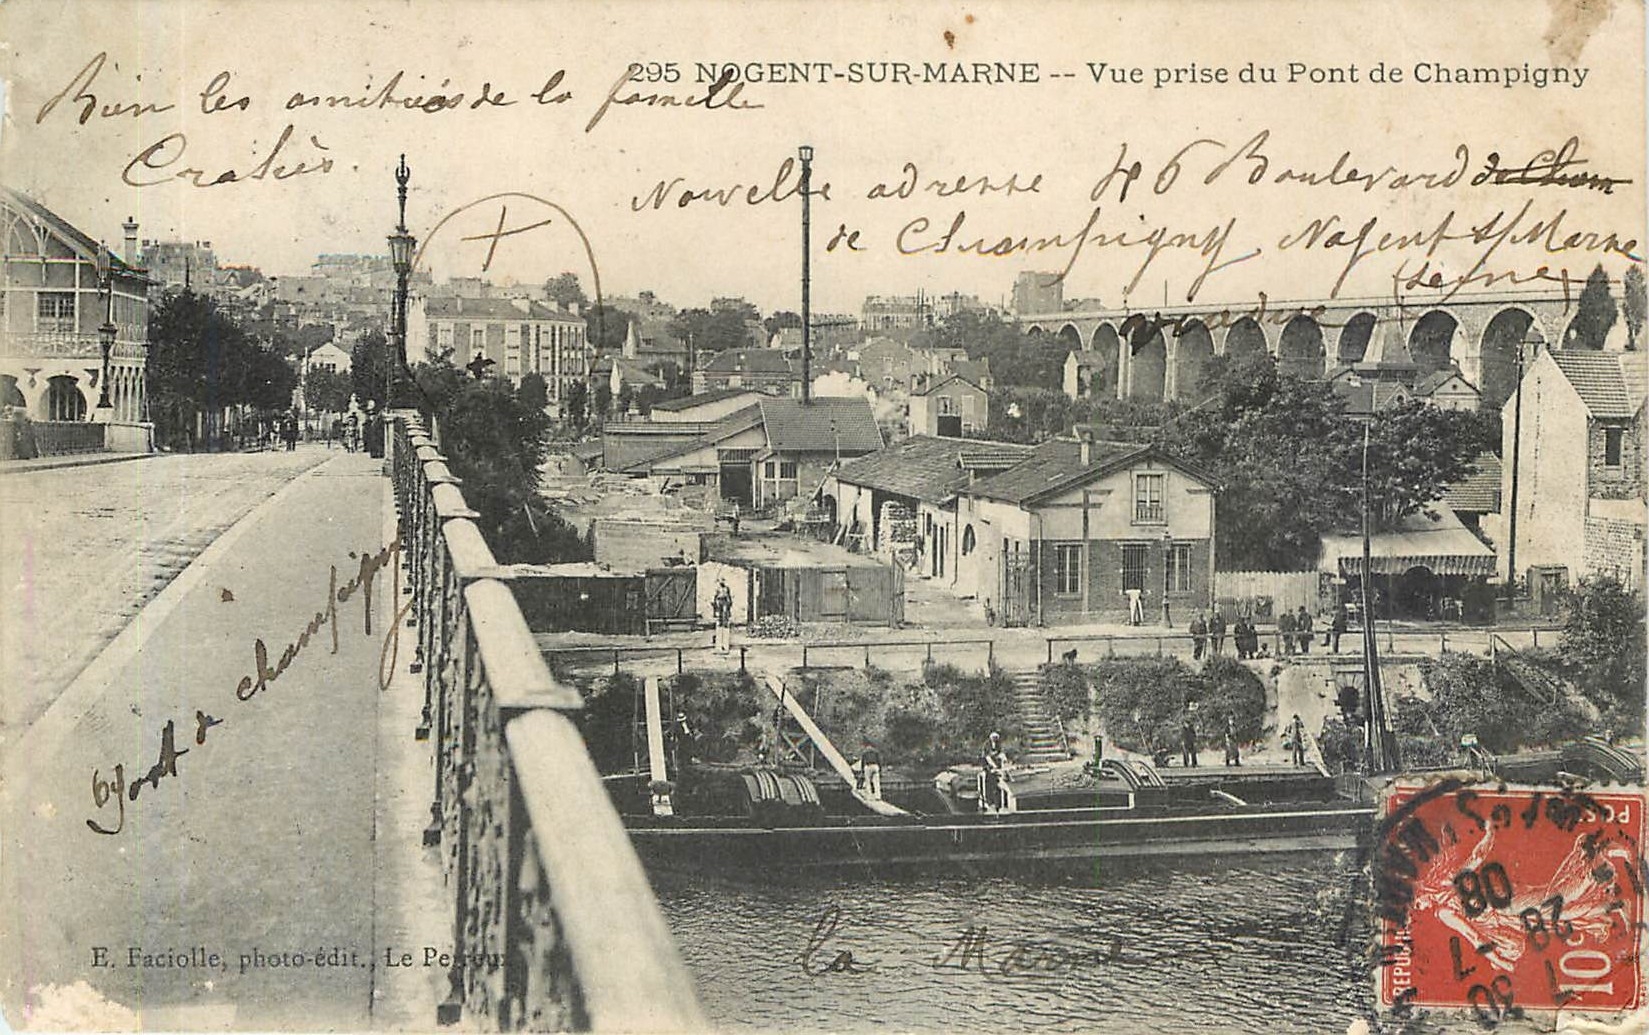 295 NOGENT-SUR-MARNE -- Vue prise du Pont de Champigny
Bien les amitiés de la famille
Cratiès.
Nouvelle adresse 46 Boulevard de Cham
de Champigny Nogent s/Marne
(Seine)
viaduc
Pont de champigny
la Marne
E. Faciolle, photo-édit., Le Perreux
POSTES
REPUBLIQUE
10c
28 -7
08